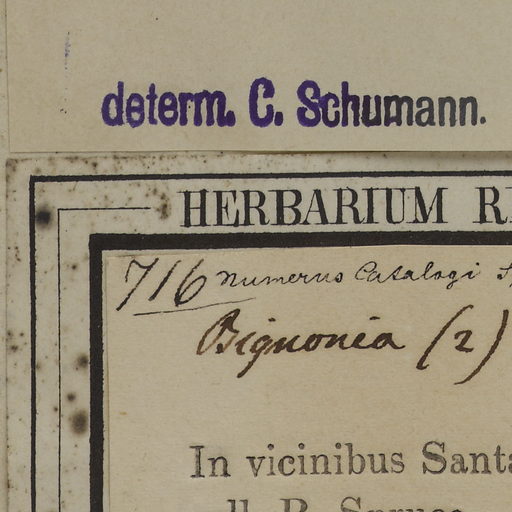 determ. C. Schumann.
HERBARIUM R
716 Numerus Catalogi S
Bignonia (2)
In vicinibus Santa
ll. R. Spruce